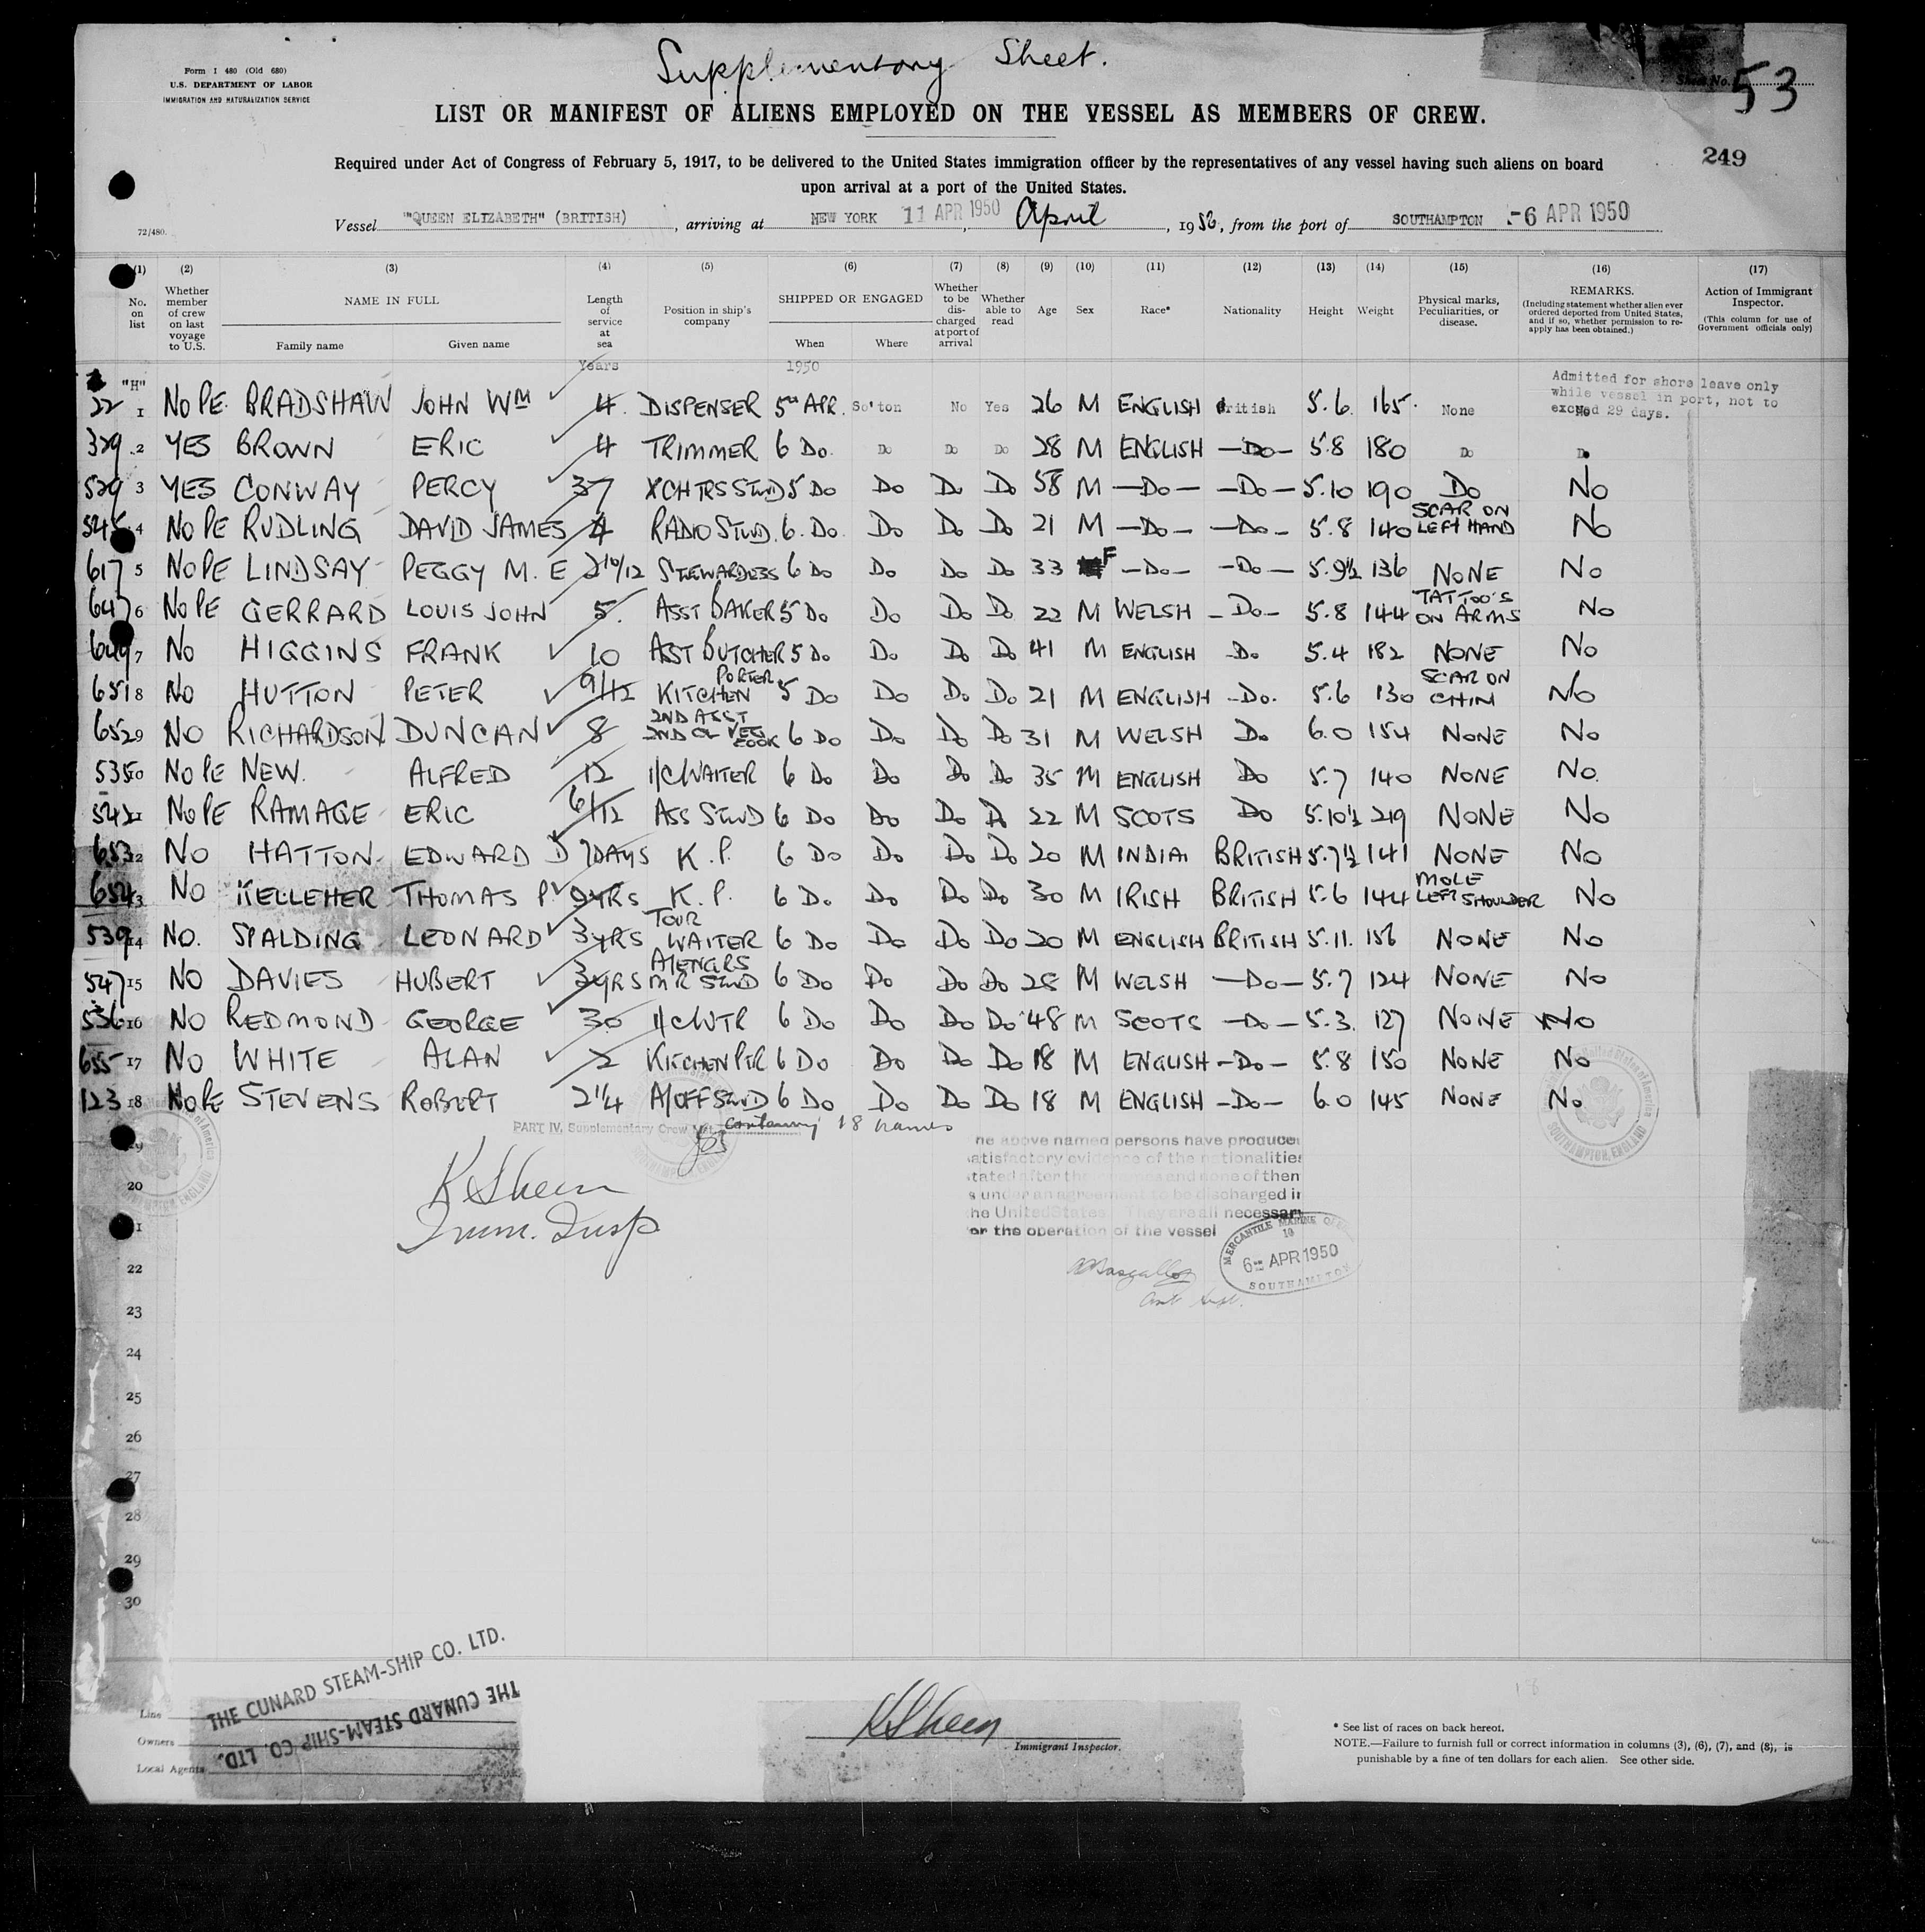 Supplementary Sheet.
Form I 480 (Old 680)
U.S. DEPARTMENT OF LABOR
IMMIGRATION AND NATURALIZATION SERVICE
Sheet No. 53
LIST OR MANIFEST OF ALIENS EMPLOYED ON THE VESSEL AS MEMBERS OF CREW.
249
Required under Act of Congress of February 5, 1917, to be delivered to the United States immigration officer by the representatives of any vessel having such aliens on board
upon arrival at a port of the United States.
72/480.
Vessel "QUEEN ELIZABETH" (BRITISH), arriving at NEW YORK 11 APR 1950, April, 1950, from the port of SOUTHAMPTON -6 APR 1950
(1) (2) (3) (4) (5) (6) (7) (8) (9) (10) (11) (12) (13) (14) (15) (16) (17)
No. on list
Whether member of crew on last voyage to U.S.
NAME IN FULL
Family name Given name
Length of service at sea
Position in ship's company
SHIPPED OR ENGAGED
When Where
Whether to be discharged at port of arrival
Whether able to read
Age Sex Race* Nationality Height Weight
Physical marks, Peculiarities, or disease.
REMARKS.
(Including statement whether alien ever ordered deported from United States, and if so, whether permission to re-apply has been obtained.)
Action of Immigrant Inspector.
(This column for use of Government officials only)
Years 1950
"H"
Admitted for shore leave only
while vessel in port, not to
exceed 29 days.
22 1 NO PE. BRADSHAW JOHN WM 4. DISPENSER 5TH APR. So'ton No Yes 26 M ENGLISH British 5.6. 165. None No
329 2 YES BROWN ERIC 4 TRIMMER 6 Do. Do Do Do 28 M ENGLISH —Do— 5.8 180 Do Do
529 3 YES CONWAY PERCY 37 XCHTRS STWD 5 Do Do Do Do 58 M —Do— —Do— 5.10 190 Do No
545 4 NO PE RUDLING DAVID JAMES 4 RADIO STWD. 6. Do. Do Do Do 21 M —Do— —Do— 5.8 140 SCAR ON LEFT HAND No
617 5 NO PE LINDSAY PEGGY M. E 2 10/12 STEWARDESS 6 Do Do Do Do 33 F —Do— —Do— 5.9½ 136 NONE No
647 6 NO PE GERRARD LOUIS JOHN 5. ASST BAKER 5 Do Do Do Do 22 M WELSH —Do— 5.8 144 TATTOO'S ON ARMS No
649 7 NO HIGGINS FRANK 10 ASST BUTCHER 5 Do Do Do Do 41 M ENGLISH Do 5.4 182 NONE No
651 8 NO HUTTON PETER 9/12 KITCHEN PORTER 5 Do Do Do Do 21 M ENGLISH —Do. 5.6 130 SCAR ON CHIN No
652 9 NO RICHARDSON DUNCAN 8 2ND ASST 2ND CL VEG COOK 6 Do Do Do Do 31 M WELSH Do 6.0 154 NONE No
535 10 NO PE NEW. ALFRED 12 1/C WAITER 6 Do Do Do Do 35 M ENGLISH Do 5.7 140 NONE No.
542 11 NO PE RAMAGE ERIC 6/12 ASS STWD 6 Do Do Do Do 22 M SCOTS Do 5.10½ 219 NONE No
653 12 NO HATTON EDWARD D 7DAYS K.P. 6 Do Do Do Do 20 M INDIAN BRITISH 5.7½ 141 NONE No
654 13 NO KELLEHER THOMAS P. 2YRS K.P. 6 Do Do Do Do 30 M IRISH BRITISH 5.6 144 MOLE LEFT SHOULDER No
539 14 NO. SPALDING LEONARD 3YRS TOUR WAITER 6 Do Do Do Do 20 M ENGLISH BRITISH 5.11. 156 NONE No
547 15 NO DAVIES HUBERT 3YRS A/ENGRS MR STWD 6 Do Do Do Do 28 M WELSH —Do— 5.7 124 NONE No
536 16 NO REDMOND GEORGE 30 1/C WTR 6 Do Do Do Do 48 M SCOTS —Do— 5.3. 127 NONE No
655 17 NO WHITE ALAN 2 KITCHEN PTR 6 Do Do Do Do 18 M ENGLISH —Do— 5.8 150 NONE No
123 18 NO PE STEVENS ROBERT 2¼ A/OFF STWD 6 Do Do Do Do 18 M ENGLISH —Do— 6.0 145 NONE No
PART IV, Supplementary Crew containing 18 names
19
20
21
22
23
24
25
26
27
28
29
30
K Sheen
Imm. Insp
he above named persons have produced
satisfactory evidence of the nationalities
stated after their names and none of them
s under an agreement to be discharged in
he United States They are all necessary
or the operation of the vessel
MERCANTILE MARINE OFFICE
6 APR 1950
SOUTHAMPTON
SOUTHAMPTON, ENGLAND
Line THE CUNARD STEAM-SHIP CO. LTD.
Owners THE CUNARD STEAM-SHIP CO. LTD.
Local Agents
K Sheen
Immigrant Inspector.
* See list of races on back hereof.
NOTE.—Failure to furnish full or correct information in columns (3), (6), (7), and (8), is
punishable by a fine of ten dollars for each alien. See other side.